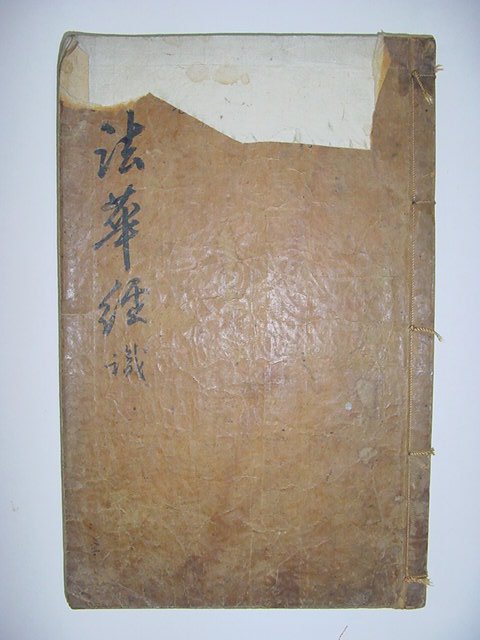 法華經識